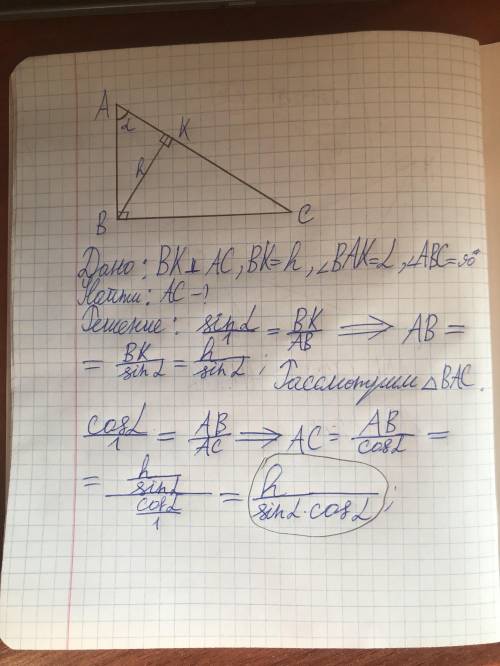 A
α
K
h
B
C
Дано: BK ⊥ AC, BK = h, ∠BAK = α, ∠ABC = 90°
Найти: AC - ?
Решение: sinα/1 = BK/AB ⟹ AB =
= BK/sinα = h/sinα; Рассмотрим △BAC.
cosα/1 = AB/AC ⟹ AC = AB/cosα =
= (h/sinα)/(cosα/1) = h/(sinα·cosα);